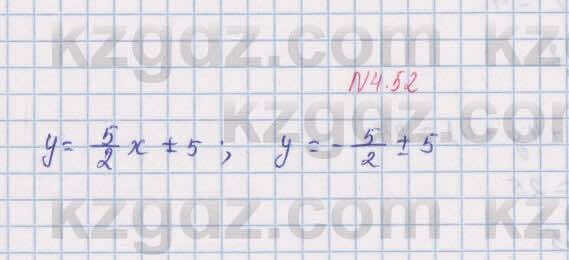 kzgdz.com
N4.52
kzgdz.com
y = 5/2 x ± 5 ; y = - 5/2 ± 5
kzgdz.com